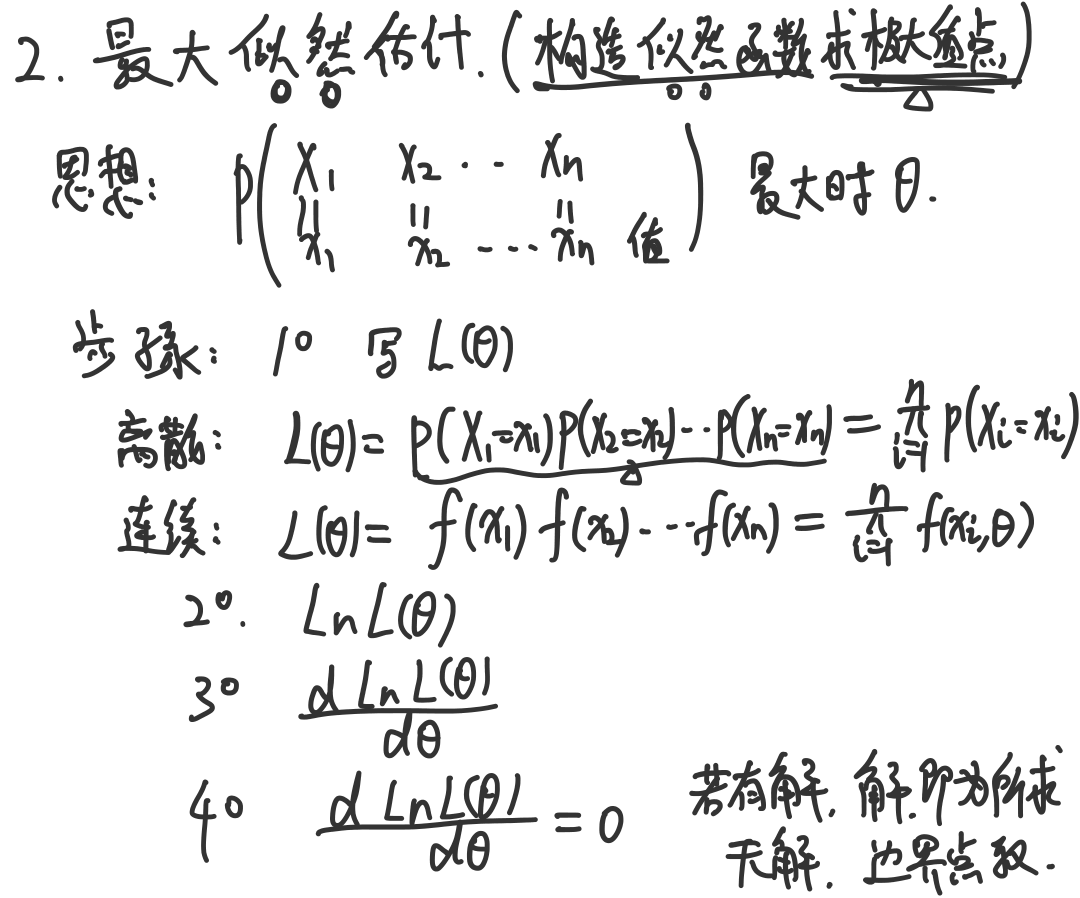 2. 最大似然估计.(构造似然函数求极大值点)
思想: P( X₁ X₂ ... Xn ) 最大时 θ.
= = =
x₁ x₂ .... xn 值
步骤: 1° 写 L(θ)
离散: L(θ)= P(X₁=x₁)P(X₂=x₂)...P(Xn=xn) = π i=1 n P(Xi=xi)
连续: L(θ)= f(x₁) f(x₂)...f(xn) = π i=1 n f(xi,θ)
2°. Ln L(θ)
3° d Ln L(θ) / dθ
4° d Ln L(θ) / dθ = 0 若有解, 解即为所求
无解, 边界点取.